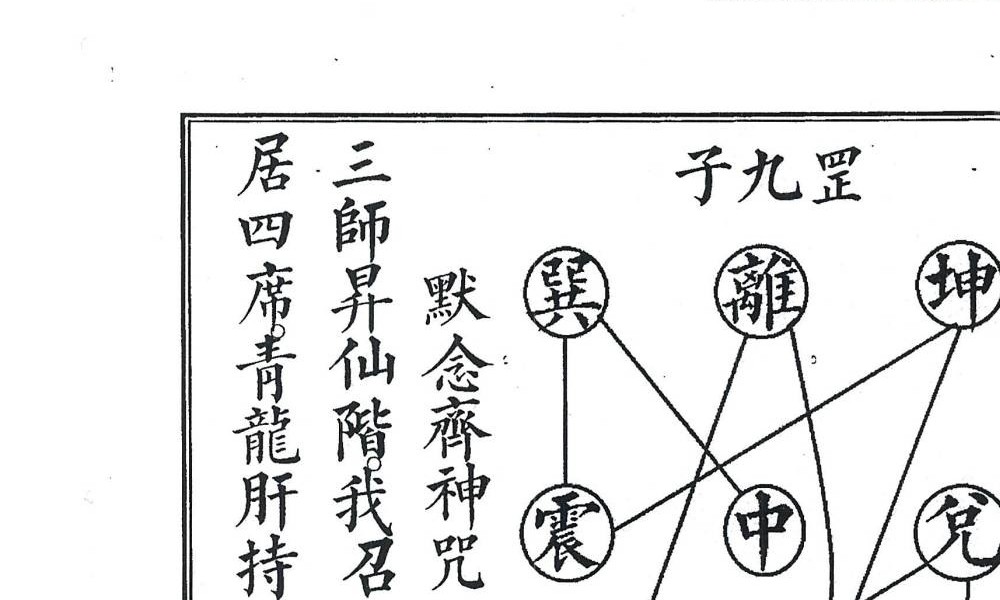 子九罡
坤
離
巽
兌
中
震
默念齊神咒
三師昇仙階。我召
居四席。青龍肝持